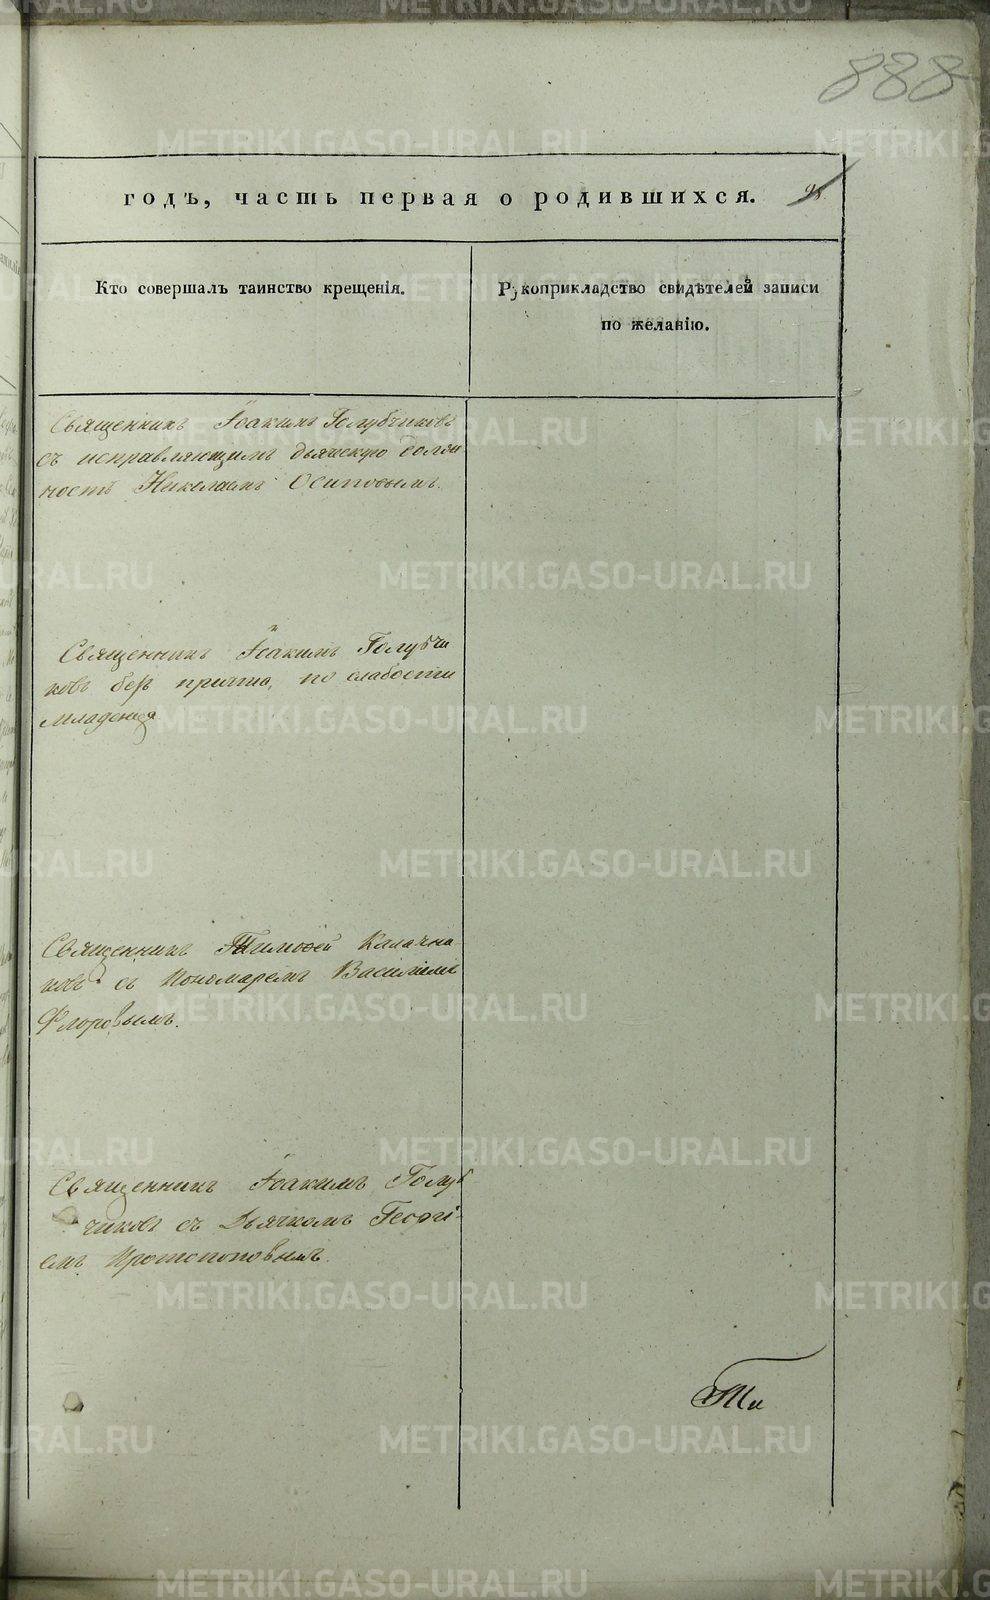 888
годъ, часть первая о родившихся.
Кто совершалъ таинство крещенія.
Рукоприкладство свидѣтелей записи
по желанію.
Священникъ Іоакимъ Голубчиковъ
съ исправляющимъ дьяческую долж
ность Николаемъ Осиповымъ.
Священникъ Іоакимъ Голубчи
ковъ безъ причта, по слабости
младенца
Священникъ Тимоѳей Калачни
ковъ съ Пономаремъ Василіемъ
Флоровымъ.
Священникъ Іоакимъ Голуб
чиковъ съ Дьячкомъ Георгі-
емъ Протопоповымъ.
METRIKI.GASO-URAL.RU